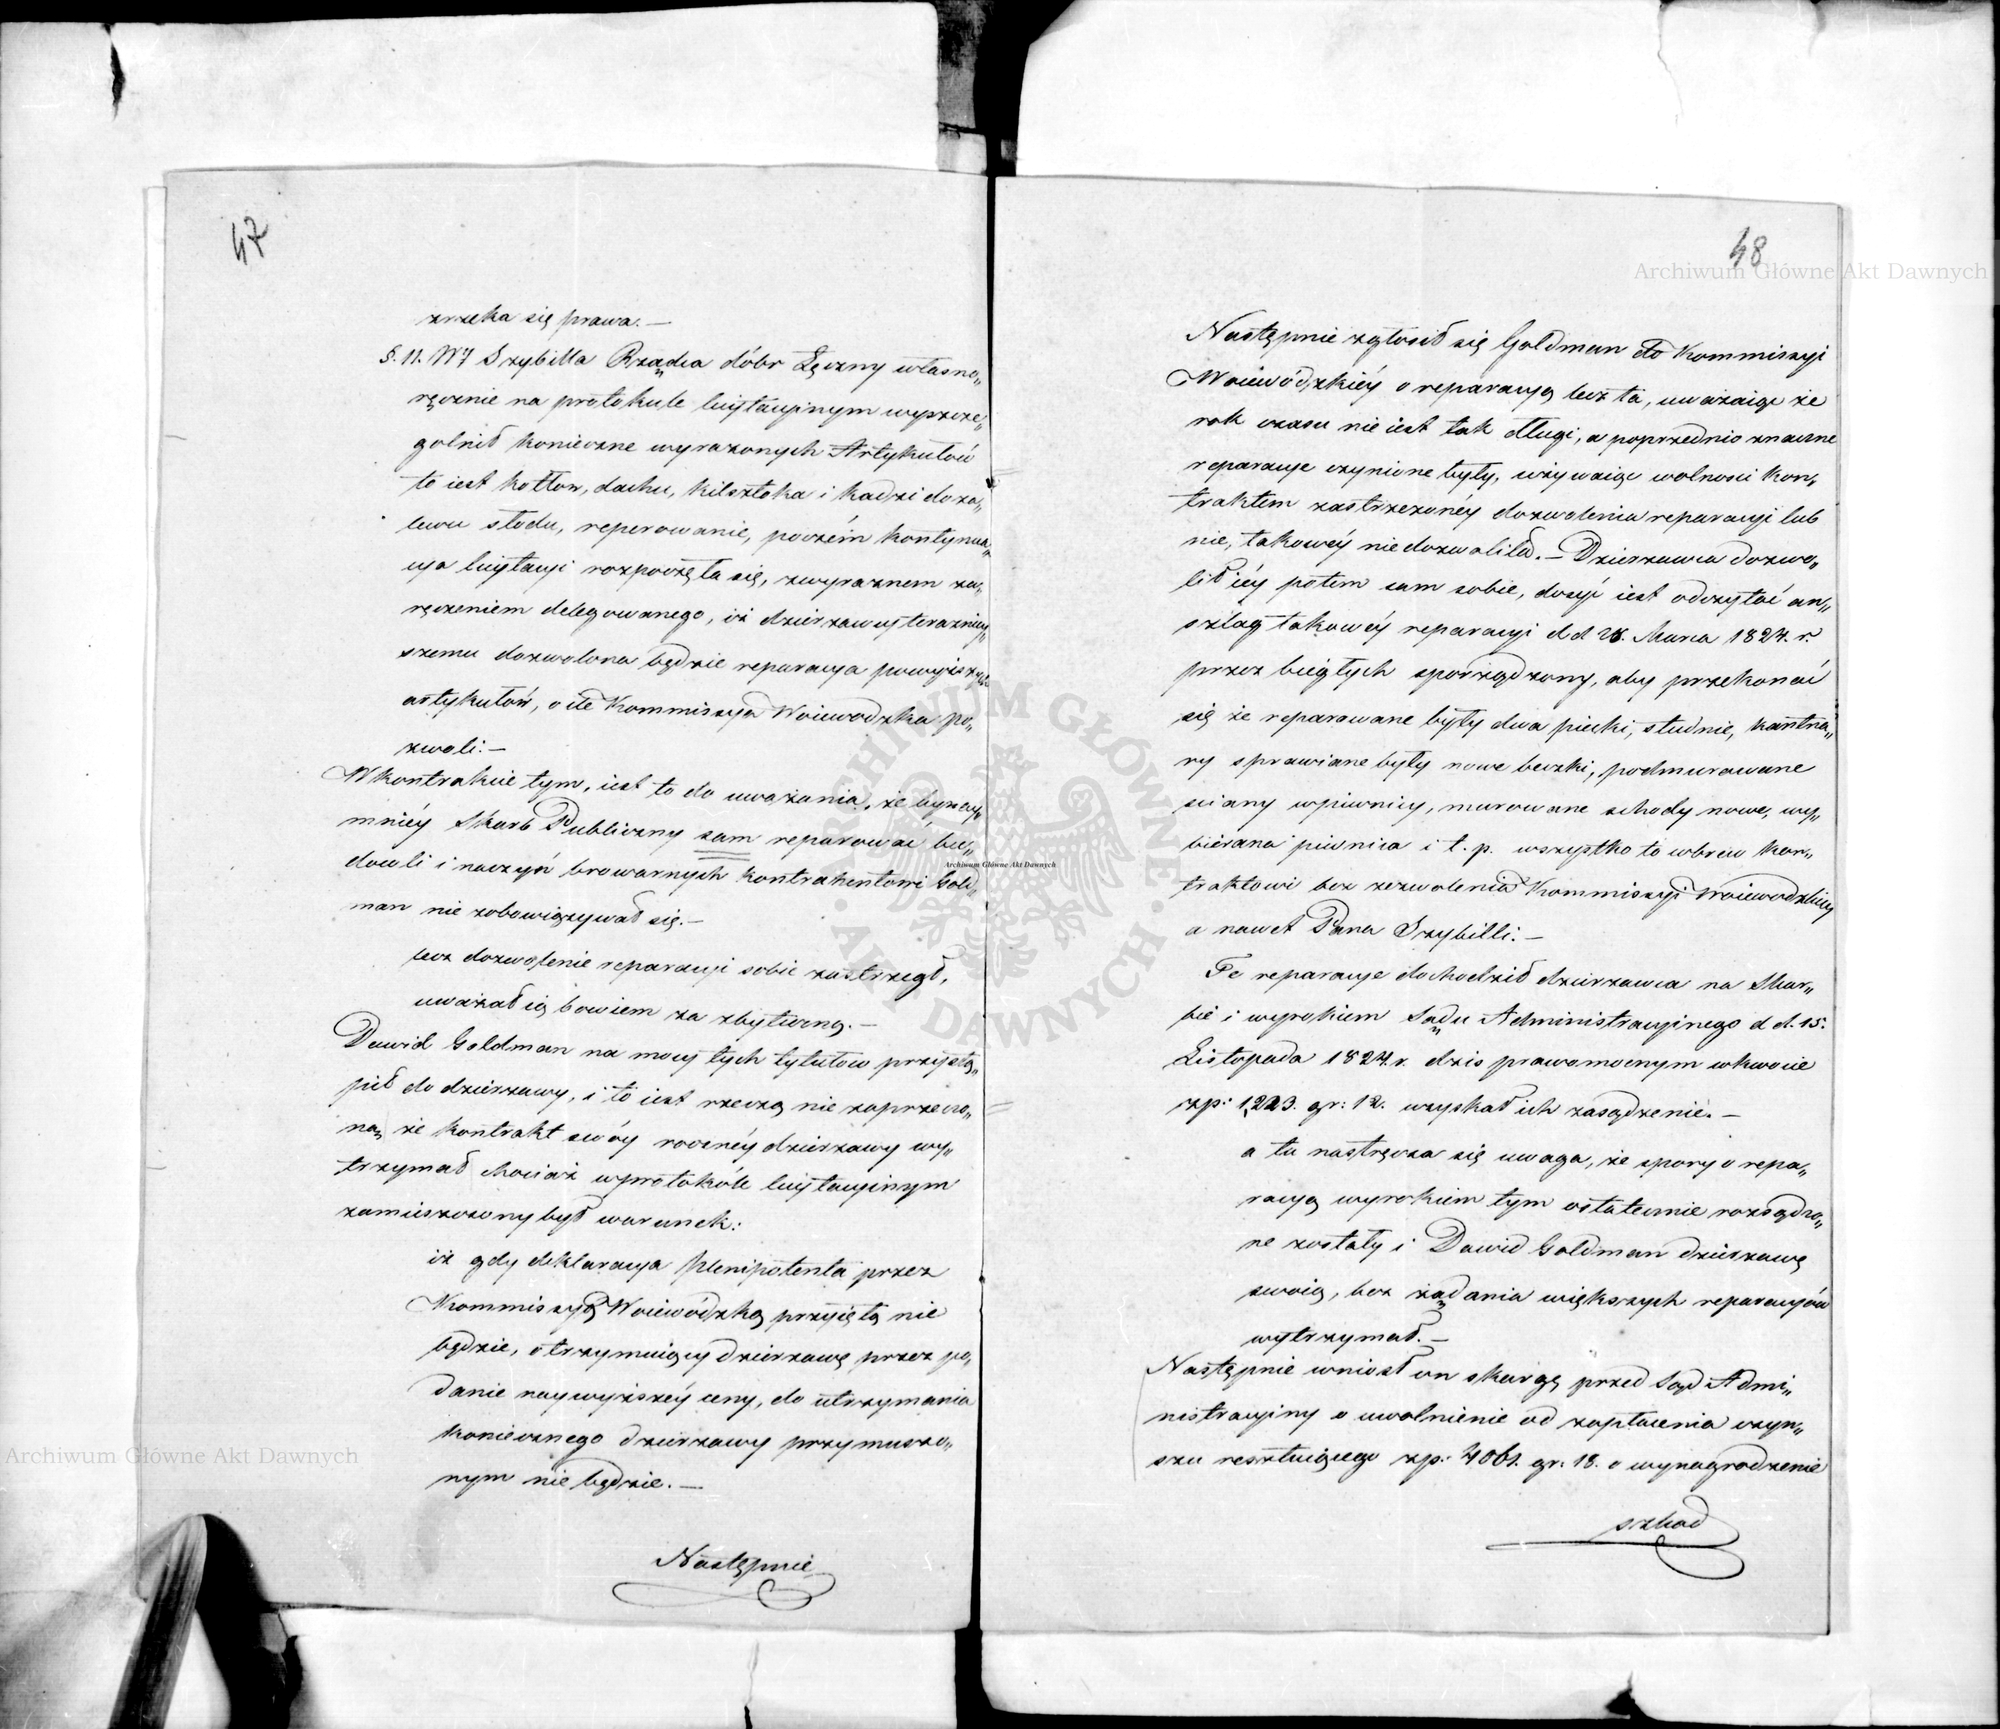 47
zrzeka się prawa. —
§. 11. WJ Szybilla Rządca dóbr Łęczny własno„
ręcznie na protokule licytacyinym wyszcze„
golnił konieczne wyrazonych Artykułów
to iest kotłow, dachu, kilsztoka i kadzi do za„
lewu słodu, reperowanie, poczém kontynua„
cya licytacyi rozpoczęła się, zwyraznem za„
ręczeniem delegowanego, iż dzierzawcy teraznieÿ„
szemu dozwolona będzie reparacya powyższych
artykułów, o ile Kommissya Woiewodzka po„
zwoli. —
W kontrakcie tym, iest to do uważania, że bynay„
mniéy Skarb Publiczny sam reparować bu„
dowli i naczyń browarnych kontrahentowi Gold„
man nie zobowiązywał się. —
lecz dozwolenie reparacyi sobie zastrzegł,
uważał ią bowiem za zbyteczną. —
Dawid Goldman na mocy tych tytułow przystą„
pił do dzierzawy, i to iest rzeczą nie zaprzeczo„
ną, że kontrakt swóy rocznéy dzierzawy wy„
trzymał chociaż w protokóle licytacyinym
zamieszczony był warunek:
iż gdy deklaracya Plenipotenta przez
Kommissyą Woiewódzką przyiętą nie
będzie, otrzymuiący dzierzawę przez po„
danie naywyższéy ceny, do utrzymania
koniecznego dzierzawy przymuszo„
nym nie będzie. —
Następnie
48
Następnie zgłosił się Goldman do Kommissyi
Woiewódzkiéy o reparacyą lecz ta, uważaiąc że
rok czasu nie iest tak długi, a poprzednio znaczne
reparacye czynione były, używaiąc wolnosci kon„
traktem zastrzeżonéy dozwolenia reparacyi lub
nie, takowéy niedozwoliła. — Dzierzawca dozwo„
lił iéy potem sam sobie, dosyć iest odczytać an„
szlag takowéy reparacyi d d 28. Marca 1824. r.
przez biegłych sporządzony, aby przekonać
się że reparowane były dwa piecki, studnie, kantna„
ry sprawiane były nowe beczki, podmurowane
sciany w piwnicy, murowane schody nowe, wy„
bierana piwnica i t. p. wszystko to wbrew kon„
traktowi bez zezwolenia Kommissyi Woiewodzkiey
a nawet Pana Szybilli. —
Te reparacye dochodził dzierzawca na Skar„
bie i wyrokiem Sądu Administracyinego d d. 15.
Listopada 1824. r. dzis prawomocnym w kwocie
zp: 1,223. gr: 12. uzyskał ich zasądzenie. —
a tu nastręcza się uwaga, że spory o repa„
racyą wyrokiem tym ostatecznie rozsądzo„
ne zostały i Dawid Goldman dzierzawę
swoią, bez żądania większych reparacyów
wytrzymał. —
Następnie wniosł on skargę przed Sąd Admi„
nistracyiny o uwolnienie od zapłacenia czyn„
szu resztuiącego zp: 4061. gr: 18. o wynagrodzenie
szkod
Archiwum Główne Akt Dawnych
Archiwum Główne Akt Dawnych
Archiwum Główne Akt Dawnych
ARCHIWUM GŁÓWNE
AKT DAWNYCH